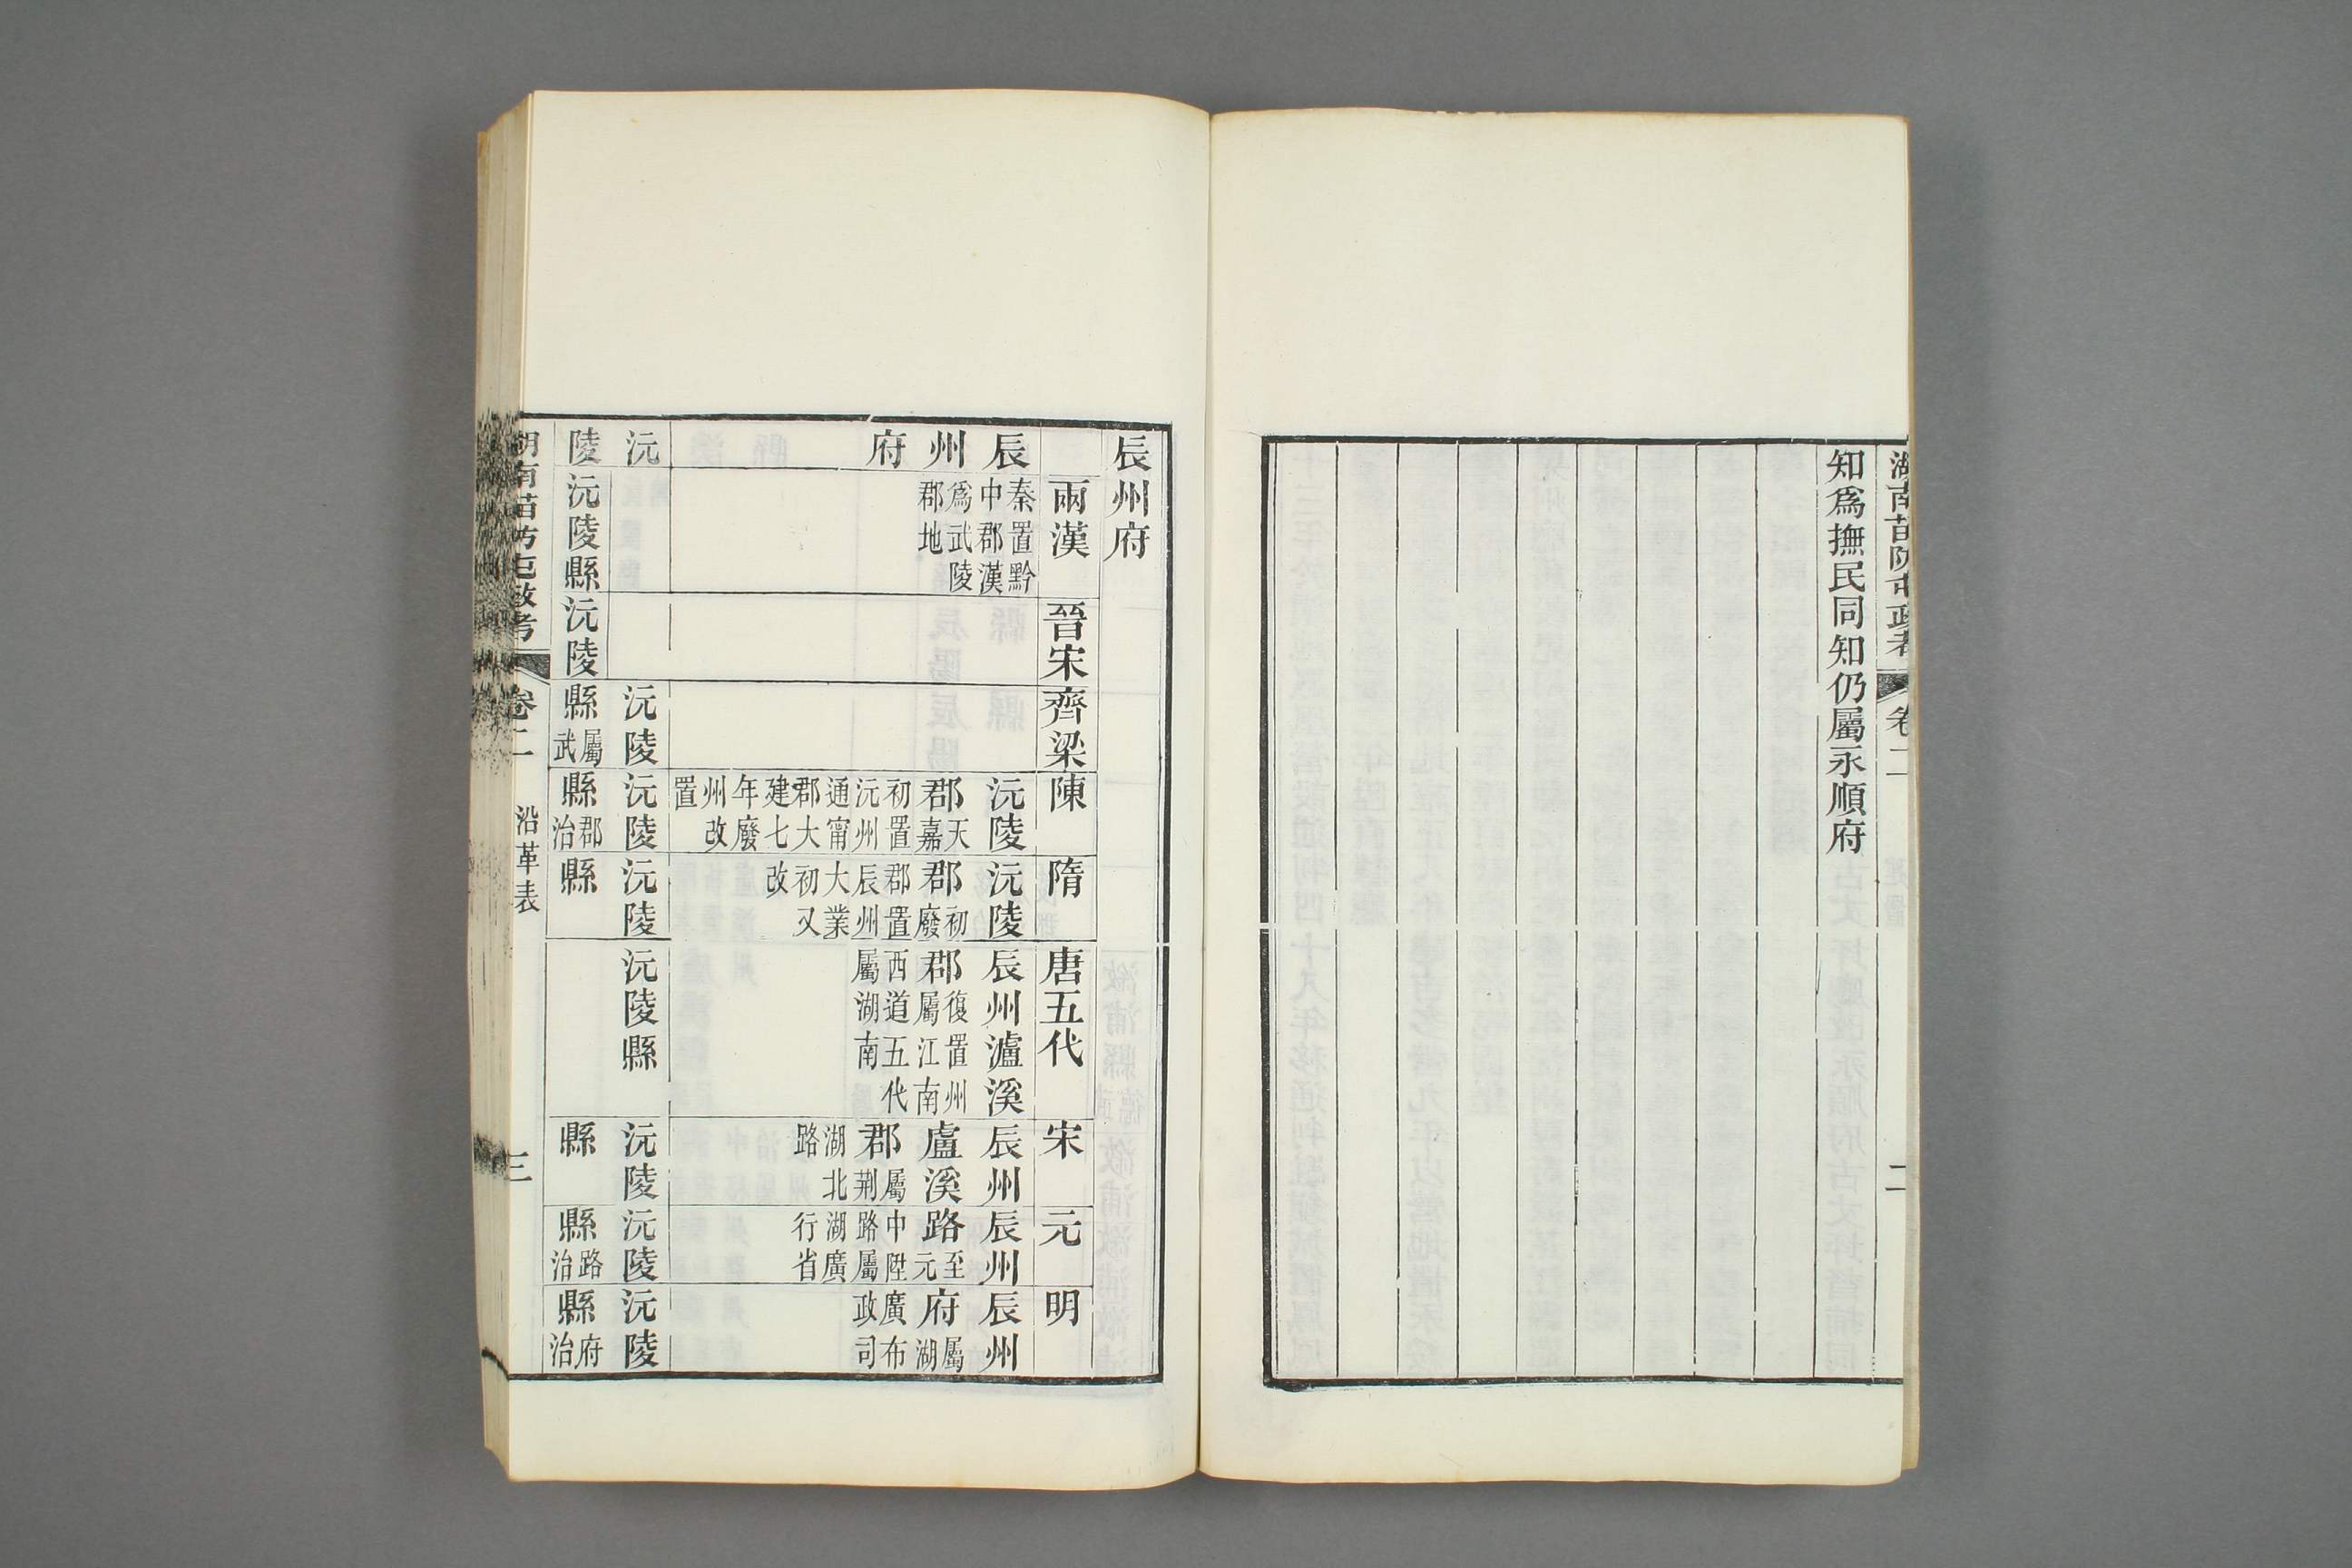 湖南苗防屯政考 卷二 二
知爲撫民同知仍屬永順府
辰州府
兩漢
晉宋
齊梁
陳
隋
唐五代
宋
元
明
辰州府
秦置黔中郡漢爲武陵郡地
沅陵郡天嘉初置沅州通甯郡大建七年廢州改置
沅陵郡初廢郡置辰州大業初又改
辰州瀘溪郡復置州屬江南西道五代屬湖南
辰州盧溪郡屬荆湖北路
辰州路至元中陞路屬湖廣行省
辰州府屬湖廣布政司
沅陵
沅陵縣
沅陵
沅陵縣屬武
沅陵縣郡治
沅陵縣
沅陵縣
沅陵縣
沅陵縣路治
沅陵縣府治
湖南苗防屯政考 卷二 沿革表 三